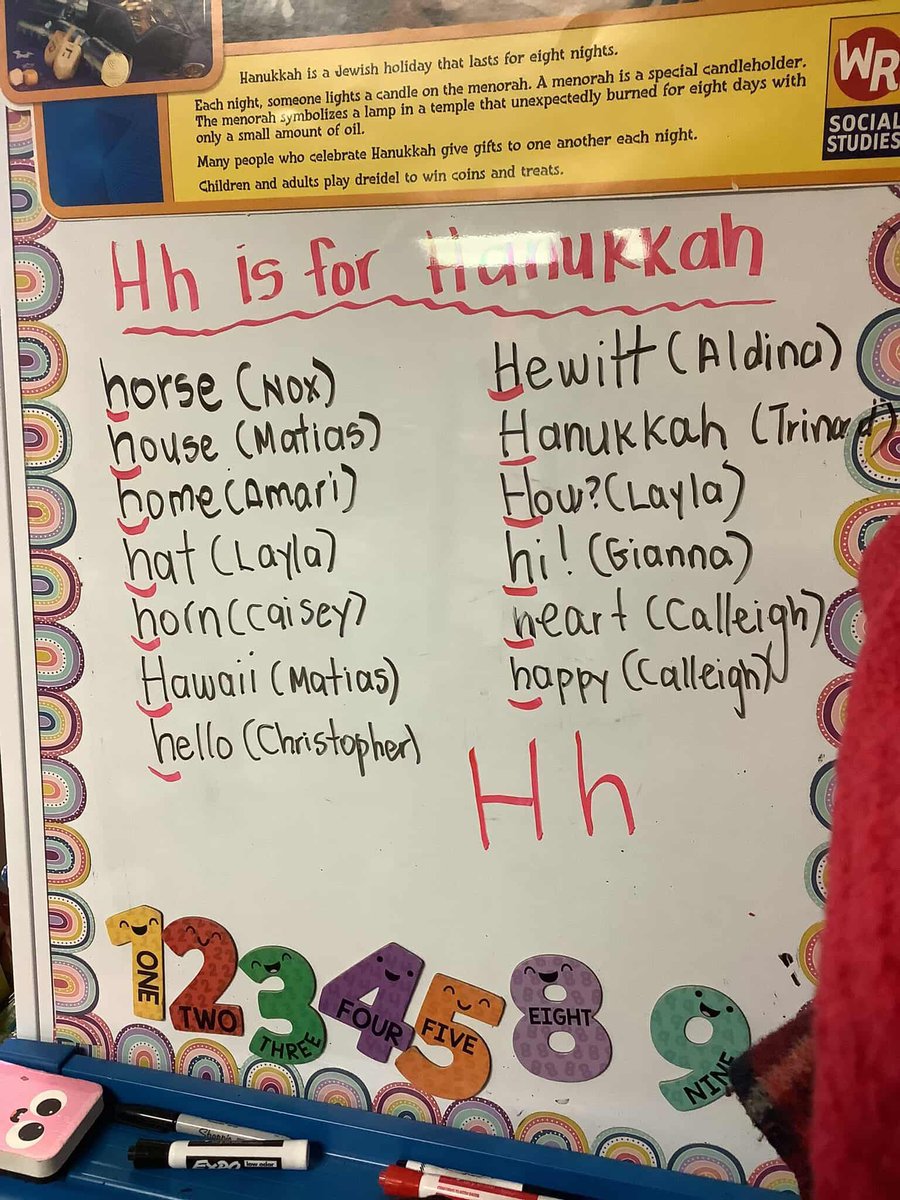 Hanukkah is a Jewish holiday that lasts for eight nights.
Each night, someone lights a candle on the menorah. A menorah is a special candleholder.
The menorah symbolizes a lamp in a temple that unexpectedly burned for eight days with
only a small amount of oil.
Many people who celebrate Hanukkah give gifts to one another each night.
Children and adults play dreidel to win coins and treats.
WR
SOCIAL
STUDIES
Hh is for Hanukkah
horse (Nox)
house (Matias)
home (Amari)
hat (Layla)
horn (Caisey)
Hawaii (Matias)
hello (Christopher)
Hewitt (Aldina)
Hanukkah
How? (Layla)
hi! (Gianna)
heart (Calleigh)
happy (Calleigh)
Hh
1 ONE
2 TWO
3 THREE
4 FOUR
5 FIVE
8 EIGHT
9 NINE
Sharpie
EXPO low odor